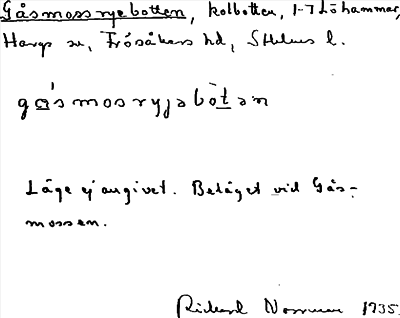 Gåsmossryebotten, kolbotten, 1-7 Löhammar,
Hargs sn, Frösåkers hd, Sthlms l.
gå̀smosryjabòtən
Läge ej angivet. Beläget vid Gås-
mossen.
Rickard 1935.